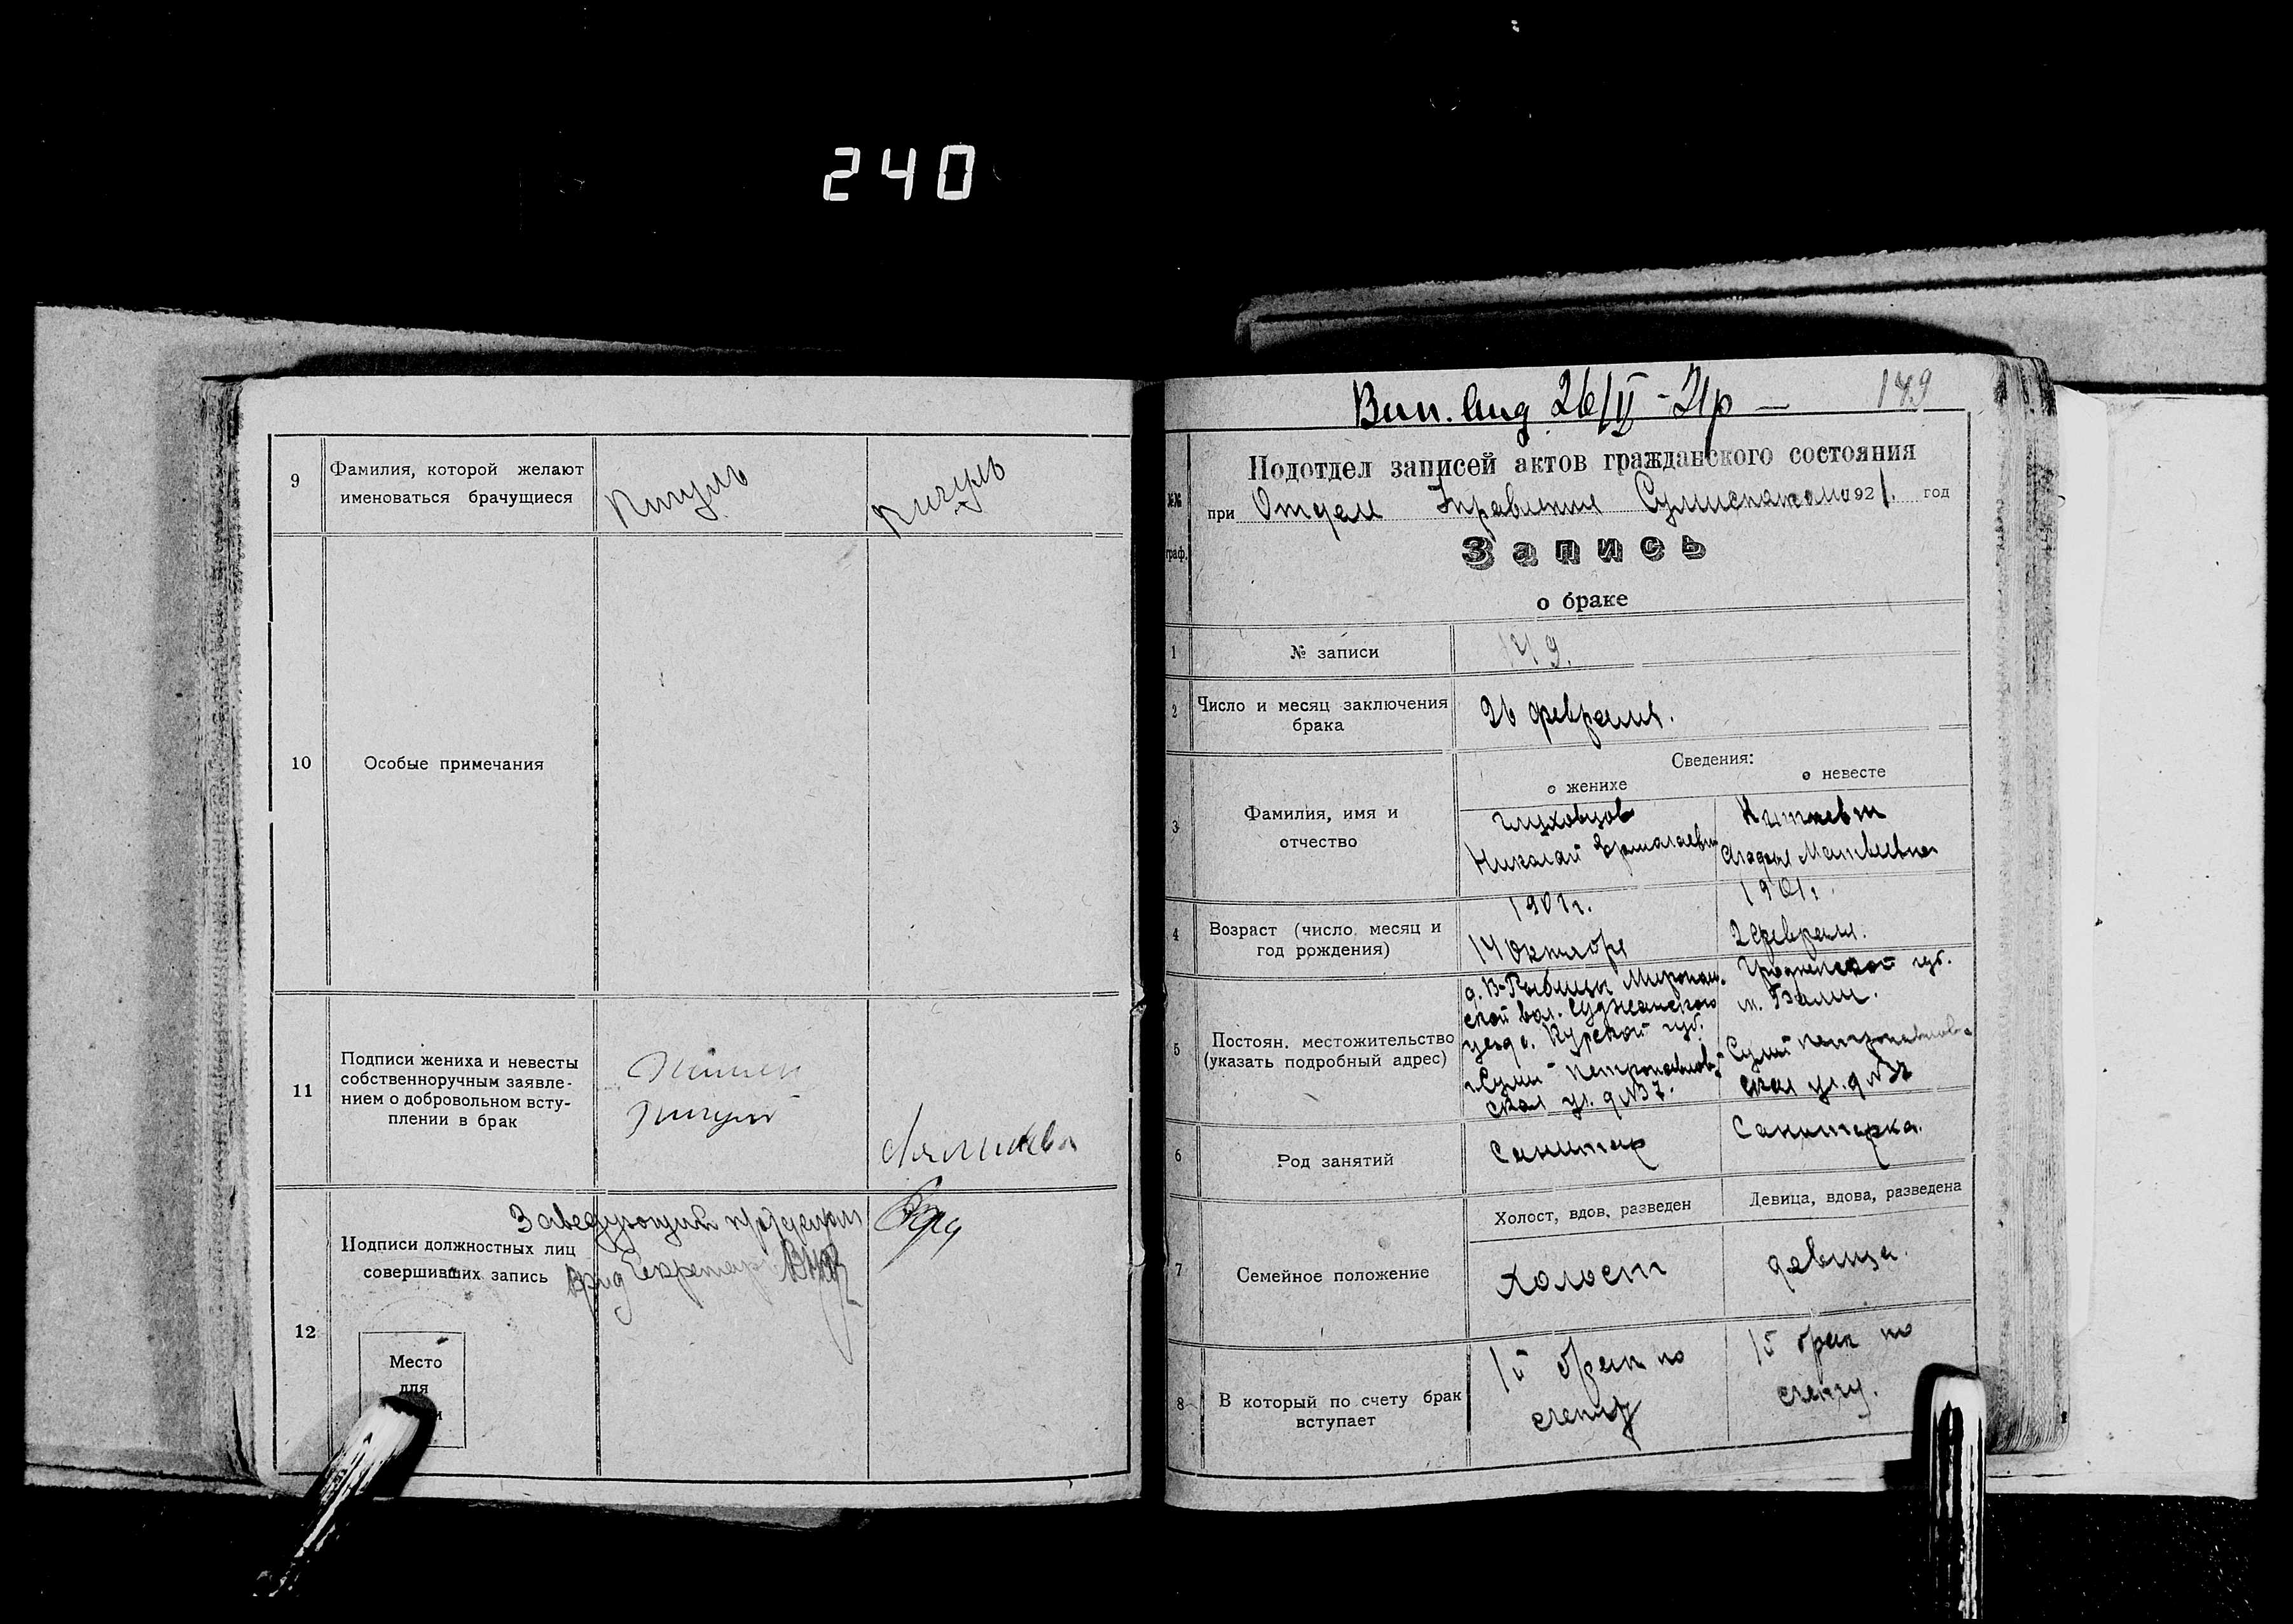 240
9
Фамилия, которой желают
именоваться брачущиеся
Пигуль
Пигуль
10
Особые примечания
11
Подписи жениха и невесты
собственноручным заявле-
нием о добровольном всту-
плении в брак
12
Заведующий
Подписи должностных лиц
совершивших запись
Врид Секретар
Место
для
149
Вип. 26/II - 21р —
Подотдел записей актов гражданского состояния
при Отделе Управления 1921. год
№№
граф.
Запись
о браке
1
№ записи
149.
2
Число и месяц заключения
брака
26 февраля.
Сведения:
о женихе
о невесте
3
Фамилия, имя и
отчество
Глуховцов
Николай Ермолаевич
Матвеевна
4
Возраст (число, месяц и
год рождения)
190 г.
14 октября
1901.
2 февраля.
5
Постоян. местожительство
(указать подробный адрес)
д. В-Рыбицы Миропол.
ской вол. Суджанского
уезда. Курской губ.
г. Сумы Петропавлов-
ская ул. д № 37.
Гродненской губ.
м.
Сумы Петропавлов-
ская ул. д № 37
6
Род занятий
Санитар
Санитарка.
7
Семейное положение
Холост, вдов, разведен
Девица, вдова, разведена
Холост
девица.
8
В который по счету брак
вступает
1й брак по
счету
1й брак по
счету.